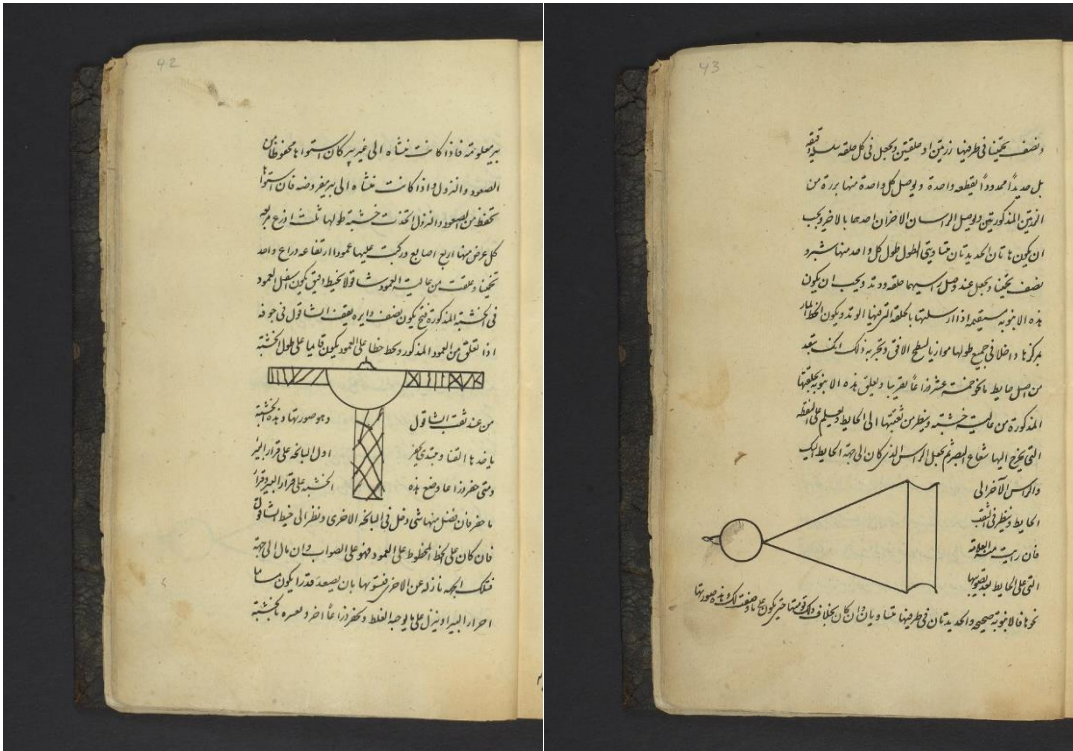 42
بير معلومة فاذا كانت منشاه الى غير بير كان استواها محفوظا من
الصعود والنزول واذا كانت منشاه الى بير مفروضه فان استوا
تحفظ من الصعود والنزول اتخذت خشبة طولها ثلث اذرع مربعه
كل عرض منها اربع اصابع وركبت عليها عمودا ارتفاعه ذراع واحد
تخمينا وعلقت من عالية العمود شاقولا بخيط دقيق يكون اسفل العمود
فى الخشبة المذكورة فتح يكون نصف دايره يقف الشاقول فى جوفه
اذا تعلق من العمود المذكور وتخط خطا على العمود يكون قايما على طول الخشبة
من عند ثقب الشاقول وهو صورتها وهذه الخشبة
ياخدها القنا ويبتدى بحفر اول البالخه على قرار البير
ومتى حفر ذراعا وضع هذه الخشبة على قرار البير وقرار
ما حفر فان فضل منها شى دخل فى البالخه الاخرى ونظر الى خيط الشاقول
فان كان على الخط المخطوط على العمود فهو على الصواب وان مال الى جهة
فتلك الجهه نازله عن الاخر فتسويها بان يصعد قدرا يكون
او ينزل على ما يوجبه الغلط ويحفر ذراعا اخر ويعبره بالخشبة
43
ونصف تخمينا فى طرفيها زرتين او حلقتين ويجعل فى كل حلقه سلسلة دقيقه
بل حديدا ممدودا بقطعه واحدة ويوصل كل واحدة منها بزرة من
الزرتين المذكورتين ويوصل الراسان الاخران احدهما بالاخر ويجب
ان يكون هاتان الحديدتان متساويتى الطول طول كل واحد منهما شبر و
نصف تخمينا ويجعل عند وصل راسيهما حلقه ووتد ويجب ان يكون
هذه الانبوبه مستقيمه اذا ارسلتها بالحلقه التى فيها الوتد ويكون الخط المار
بمركزها داخلا فى جميع طولها موازيا لسطح الافق وتجربه ذلك انك تبعد
من اصل حايط نحو خمسة عشر ذراعا تقريبا وتعلق هذه الانبوبه بحلقتها
المذكورة من عالية خشبته وينظر من ثقبتها الى الحايط وتعلم على النقطه
التى يخرج اليها شعاع البصر ثم تجعل الراس الذى كان الى جهة الحايط اليك
والراس الآخر الى
الحايط وينظر فى الثقب
فان رايت منه العلامة
التى على الحايط بعد تصويبها
نحوها فالانبوبه صحيحه والحديدتان فى طرفيها متساويان وان كان بخلاف ذلك حتى يكون على ما وصفت لك وهذه صورتها